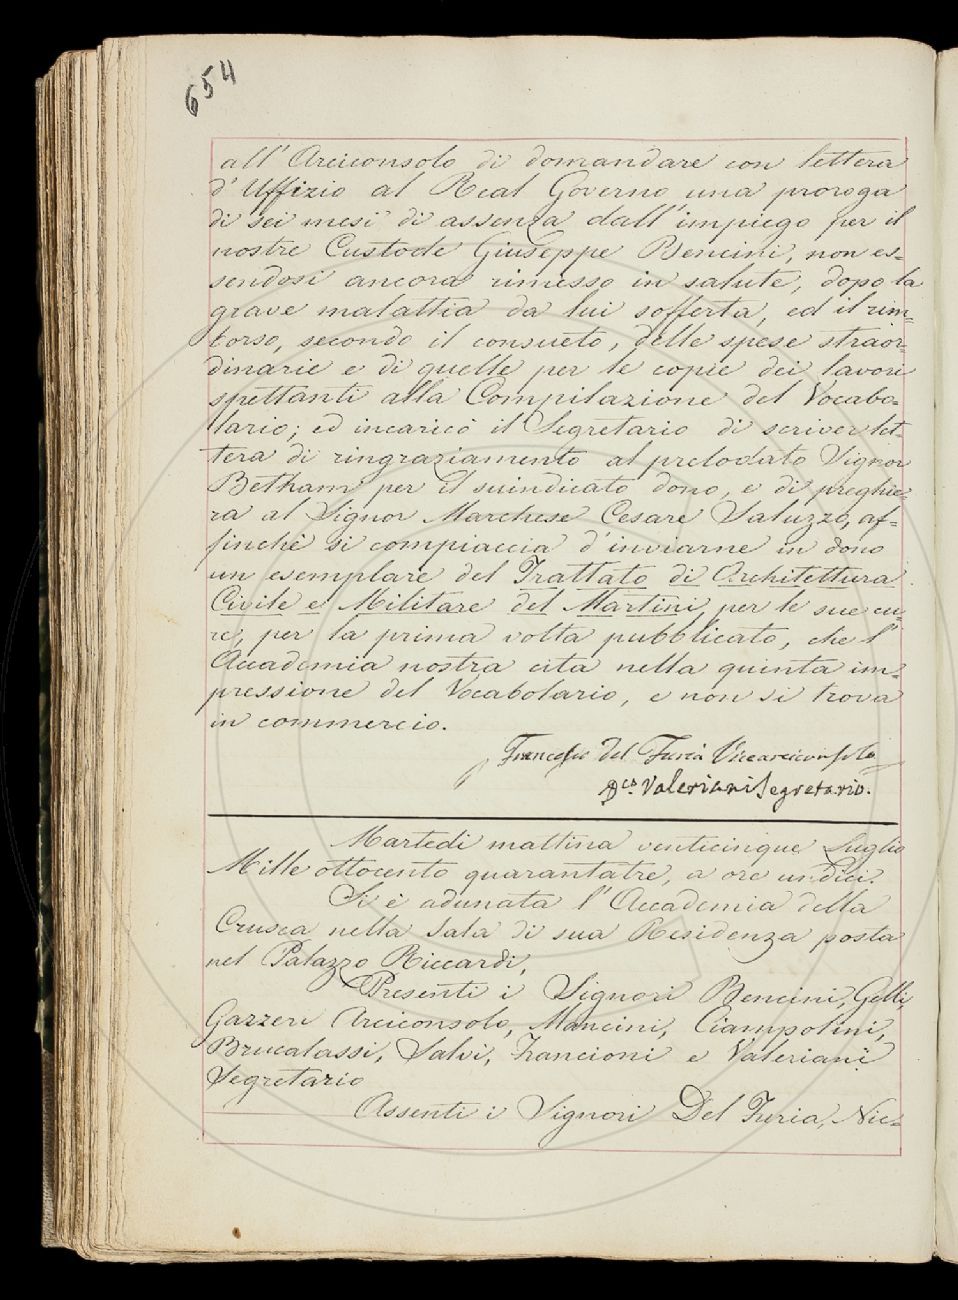 654
all' Arciconsolo di domandare con lettera
d'Uffizio al Real Governo una proroga
di sei mesi di assenza dall'impiego per il
nostro Custode Giuseppe Bencini, non es=
sendosi ancora rimesso in salute, dopo la
grave malattia da lui sofferta, ed il rim=
borso, secondo il consueto, delle spese straor=
dinarie e di quelle per le copie dei lavori
spettanti alla Compilazione del Vocabo=
lario; ed incaricò il Segretario di scriver let=
tera di ringraziamento al prelodato Signor
Betham per il suindicato dono, e di preghie=
ra al Signor Marchese Cesare Saluzzo, af=
finchè si compiaccia d'inviarne in dono
un esemplare del Trattato di Architettura
Civile e Militare del Martini, per le sue cu=
re, per la prima volta pubblicato, che l'
Accademia nostra cita nella quinta im=
pressione del Vocabolario, e non si trova
in commercio.
Francesco del Furia Vicearciconsolo
Valeriani Segretario.
Martedì mattina venticinque Luglio
Mille ottocento quarantatre, a ore undici.
Si è adunata l'Accademia della
Crusca nella Sala di sua Residenza posta
nel Palazzo Riccardi,
Presenti i Signori Bencini, Gelli,
Gazzeri Arciconsolo, Mancini, Ciampolini,
Brucalassi, Salvi, Francioni e Valeriani
Segretario
Assenti i Signori Del Furia, Nic=